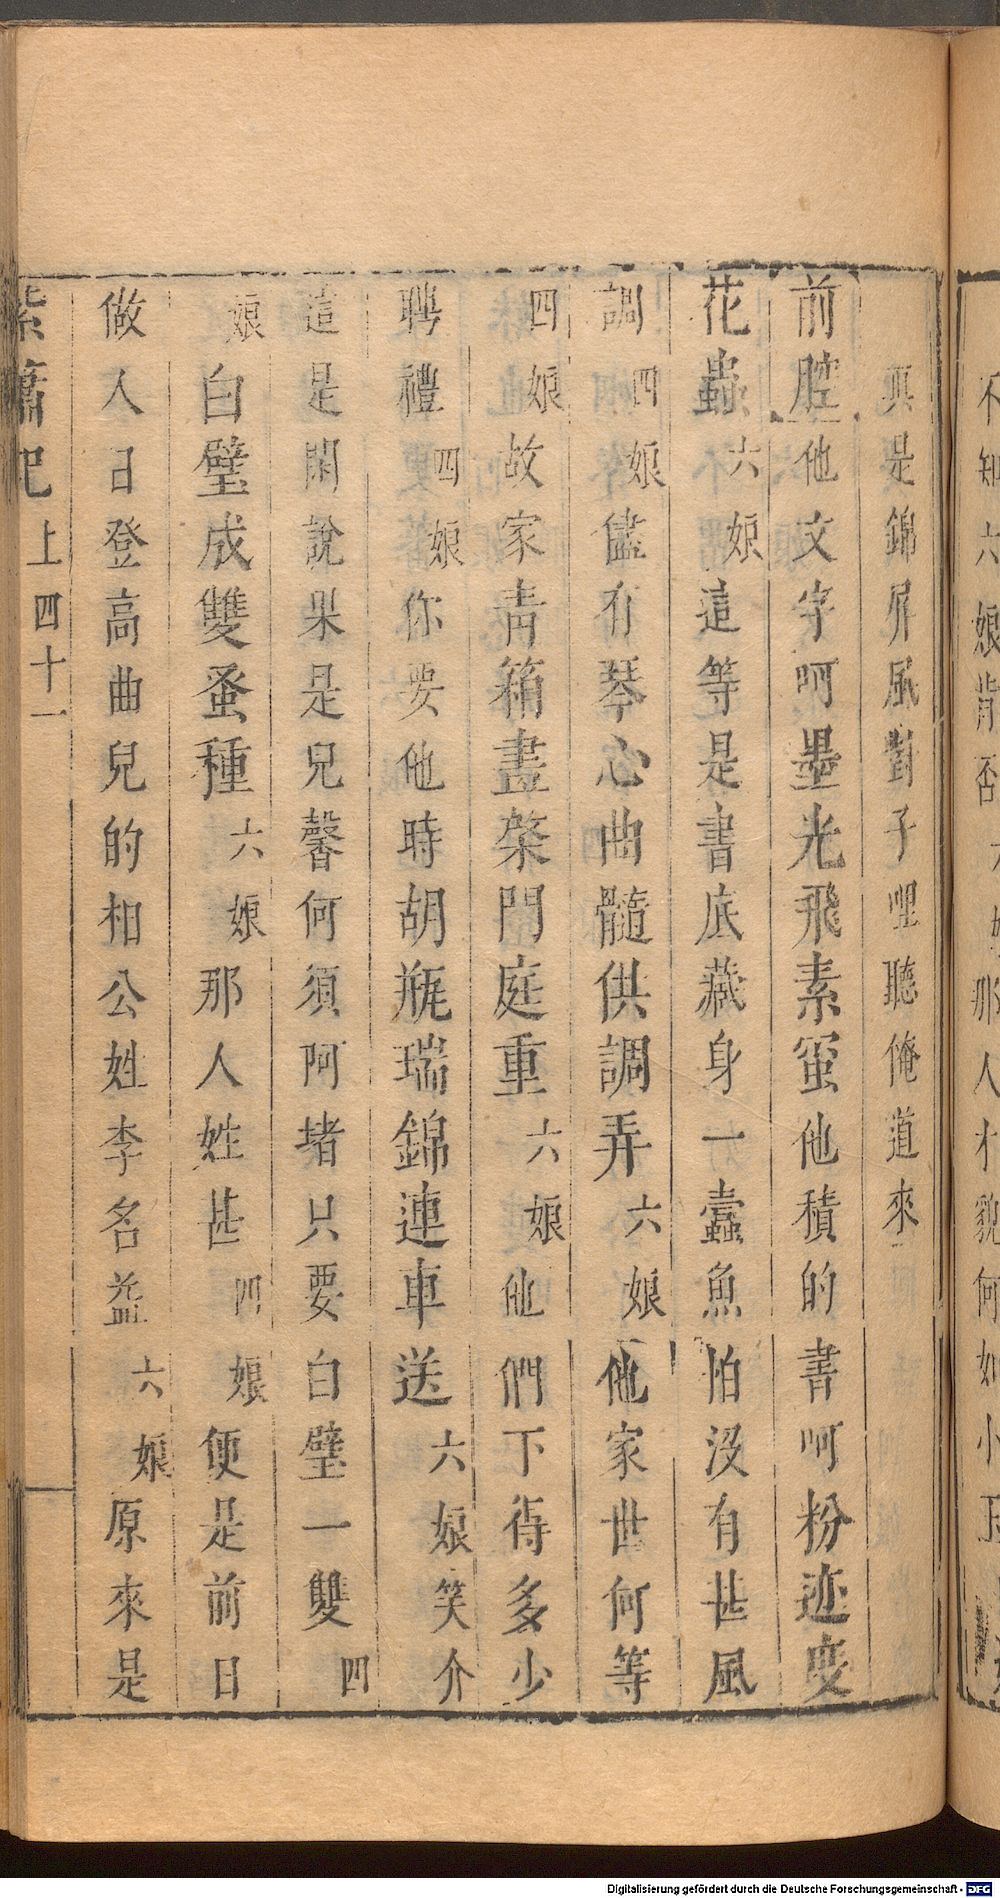 不知六娘背否
那人才貌何如小玉
真是錦屏風對子哩聽俺道來
前腔他文字呵墨光飛素蜜他積的書呵粉迹变
花蟲六娘這等是書底藏身一蠹魚怕沒有甚風
調四娘儘有琴心曲髓供調弄六娘他家世何等
四娘故家靑箱畫棨門庭重六娘他們下得多少
聘禮四娘你要他時胡瓶瑞錦連車送六娘笑介
這是閑說果是兒馨何須阿堵只要白璧一雙四
娘白璧成雙蚤種六娘那人姓甚四娘便是前日
做人日登高曲兒的相公姓李名益六娘原來是
紫簫記 上 四十一
Digitalisierung gefördert durch die Deutsche Forschungsgemeinschaft - DFG